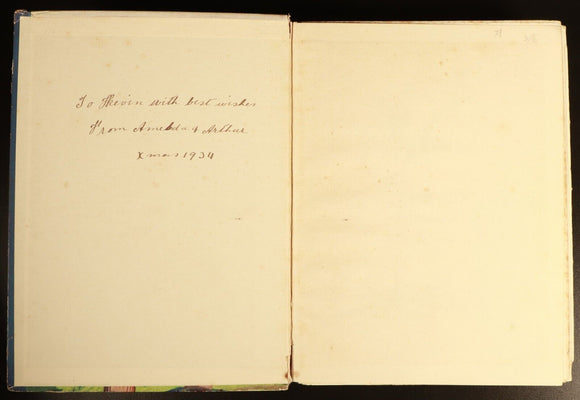 To Kevin with best wishes
From Amelda & Arthur
Xmas 1934